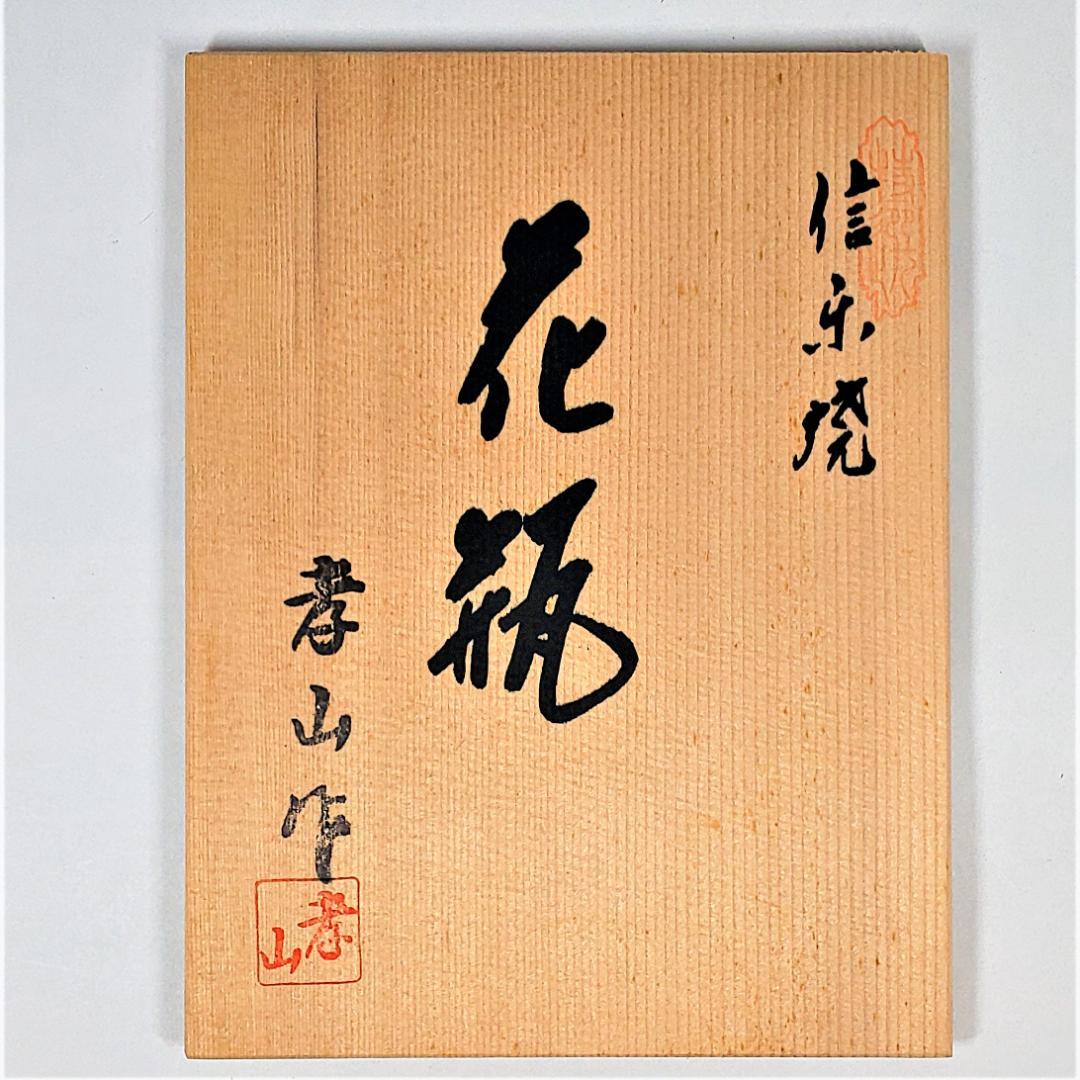 信楽焼
花瓶
孝山作
孝山